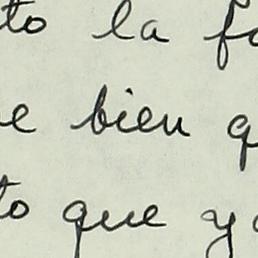 to la fo
e bien q
to que y